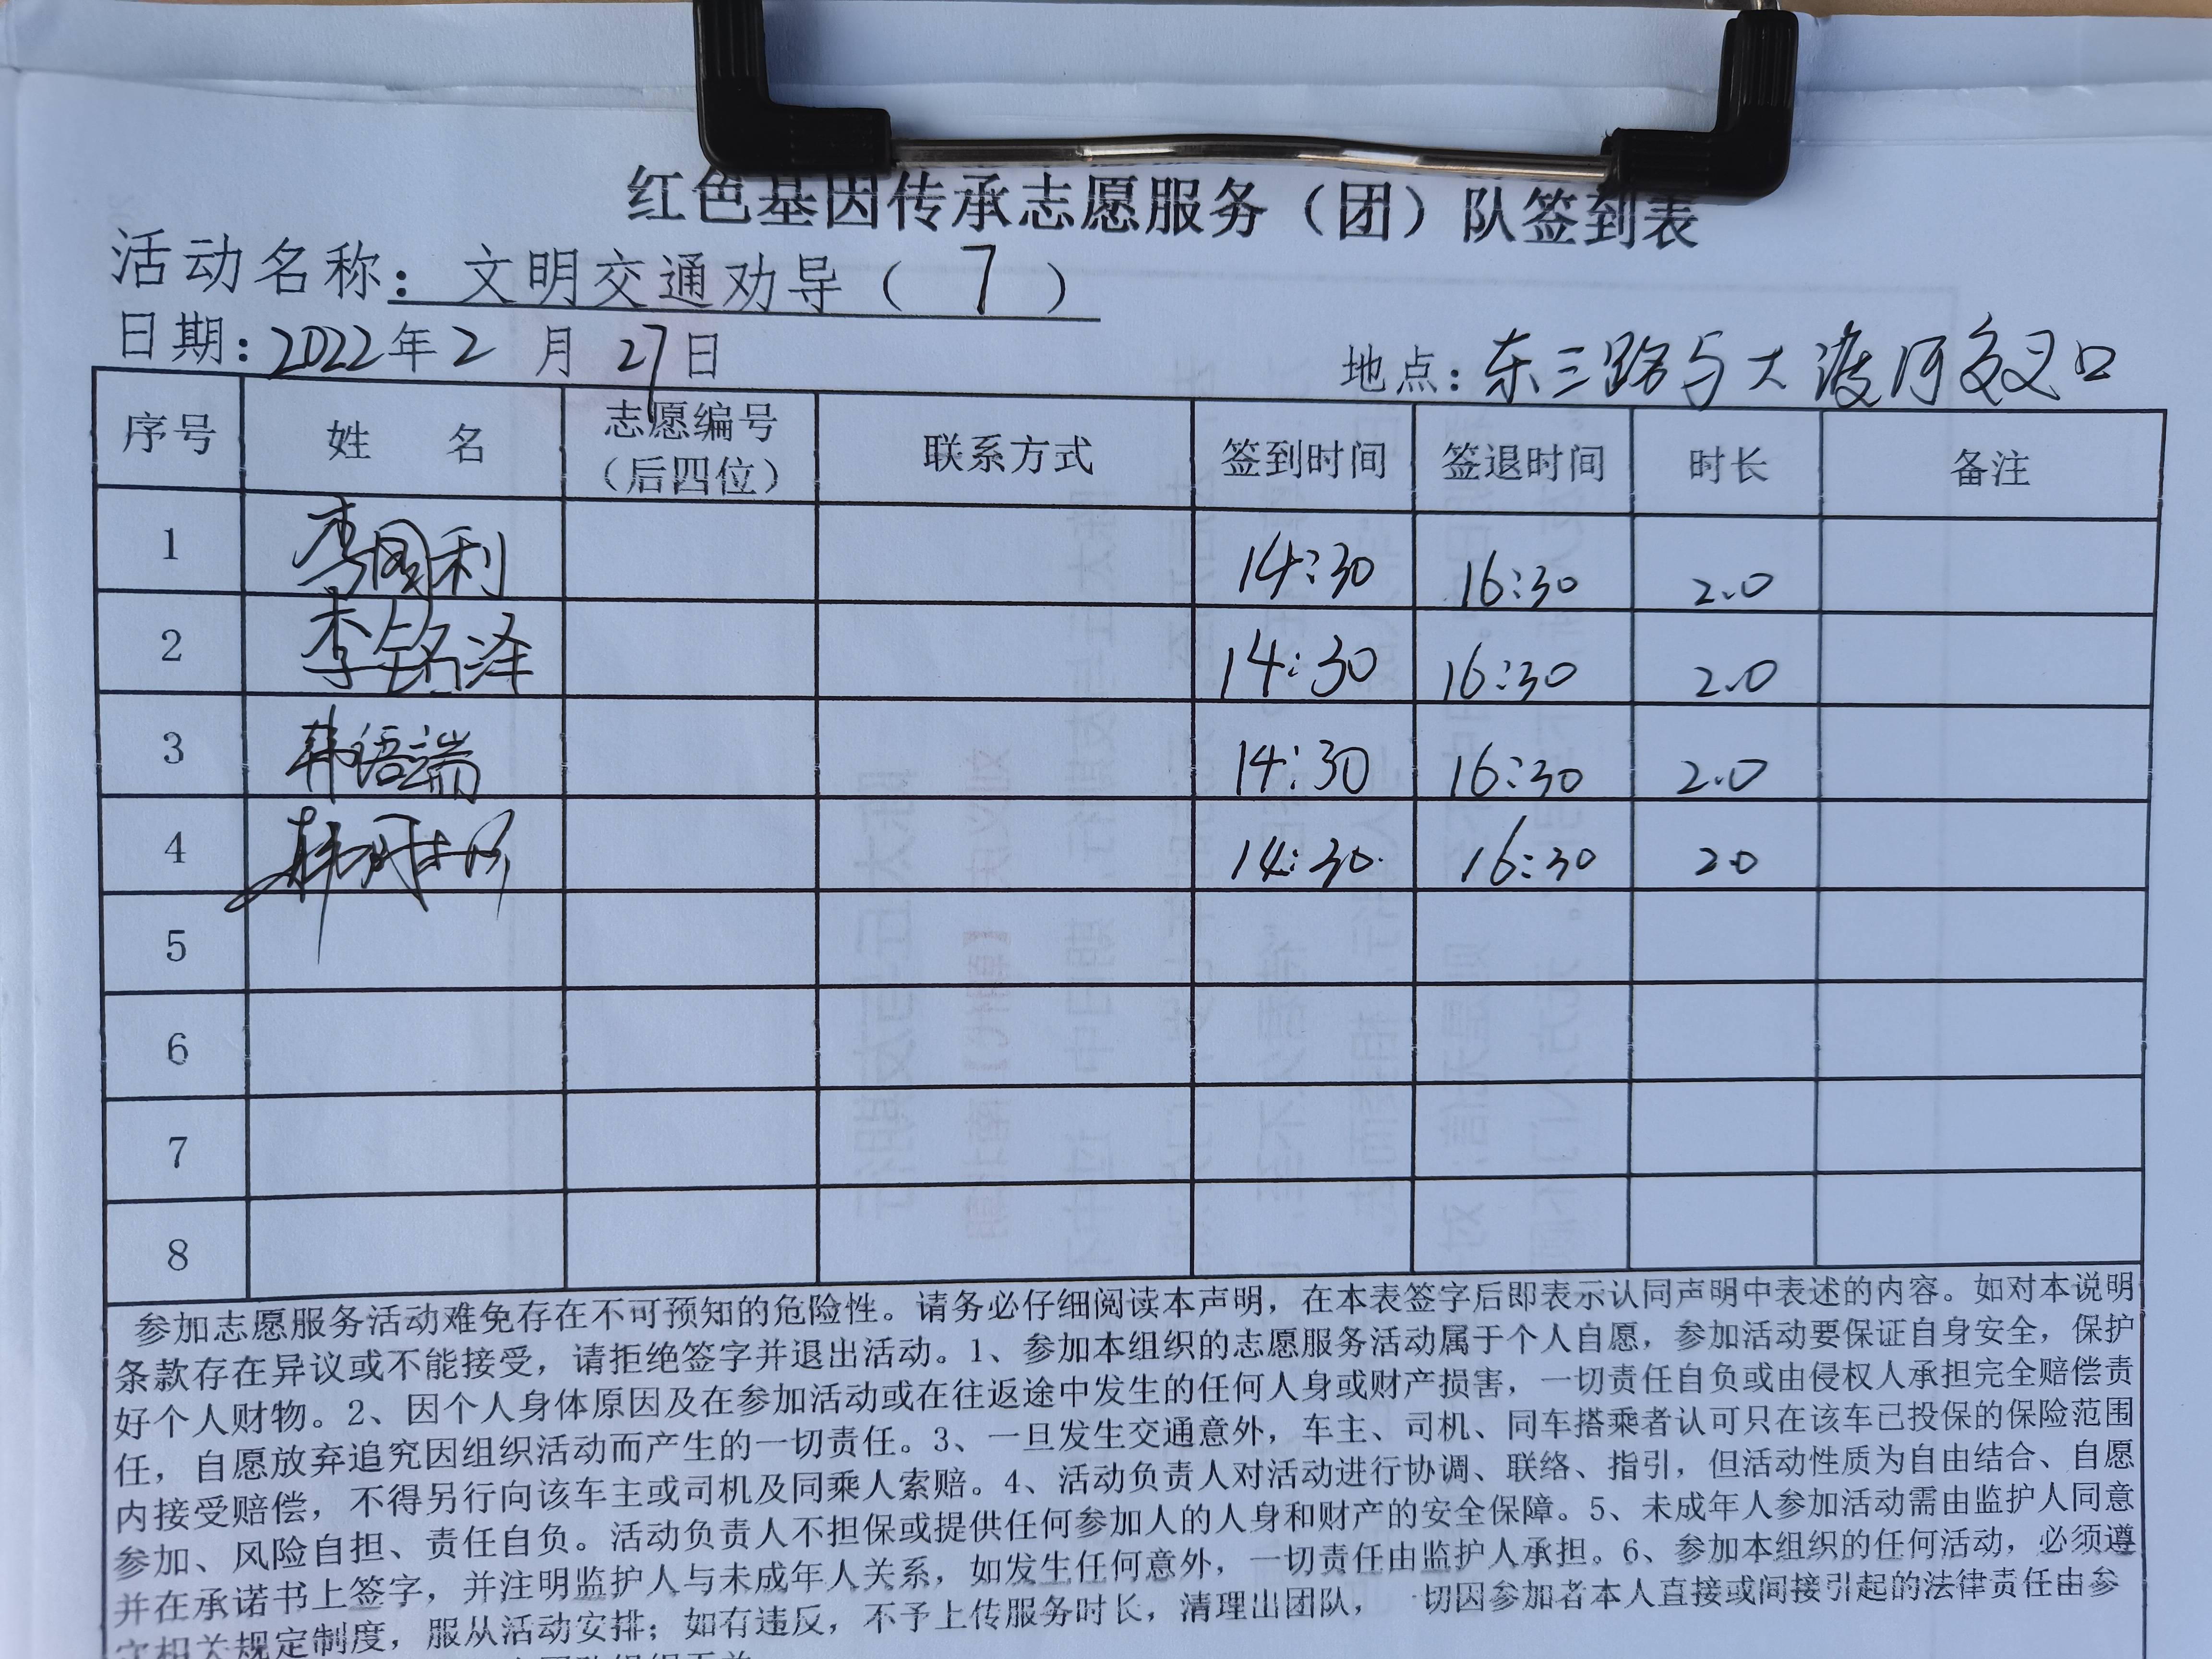 红色基因传承志愿服务（团）队签到表
活动名称：文明交通劝导（7）
日期：2022年2月27日 地点：东三路与大渡河交叉口
序号 姓 名 志愿编号（后四位） 联系方式 签到时间 签退时间 时长 备注
1 李国利 14:30 16:30 2.0
2 李铭泽 14:30 16:30 2.0
3 韩语端 14:30 16:30 2.0
4 14:30 16:30 2.0
5
6
7
8
参加志愿服务活动难免存在不可预知的危险性。请务必仔细阅读本声明，在本表签字后即表示认同声明中表述的内容。如对本说明
条款存在异议或不能接受，请拒绝签字并退出活动。1、参加本组织的志愿服务活动属于个人自愿，参加活动要保证自身安全，保护
好个人财物。2、因个人身体原因及在参加活动或在往返途中发生的任何人身或财产损害，一切责任自负或由侵权人承担完全赔偿责
任，自愿放弃追究因组织活动而产生的一切责任。3、一旦发生交通意外，车主、司机、同车搭乘者认可只在该车已投保的保险范围
内接受赔偿，不得另行向该车主或司机及同乘人索赔。4、活动负责人对活动进行协调、联络、指引，但活动性质为自由结合、自愿
参加、风险自担、责任自负。活动负责人不担保或提供任何参加人的人身和财产的安全保障。5、未成年人参加活动需由监护人同意
并在承诺书上签字，并注明监护人与未成年人关系，如发生任何意外，一切责任由监护人承担。6、参加本组织的任何活动，必须遵
守相关规定制度，服从活动安排；如有违反，不予上传服务时长，清理出团队，一切因参加者本人直接或间接引起的法律责任由参